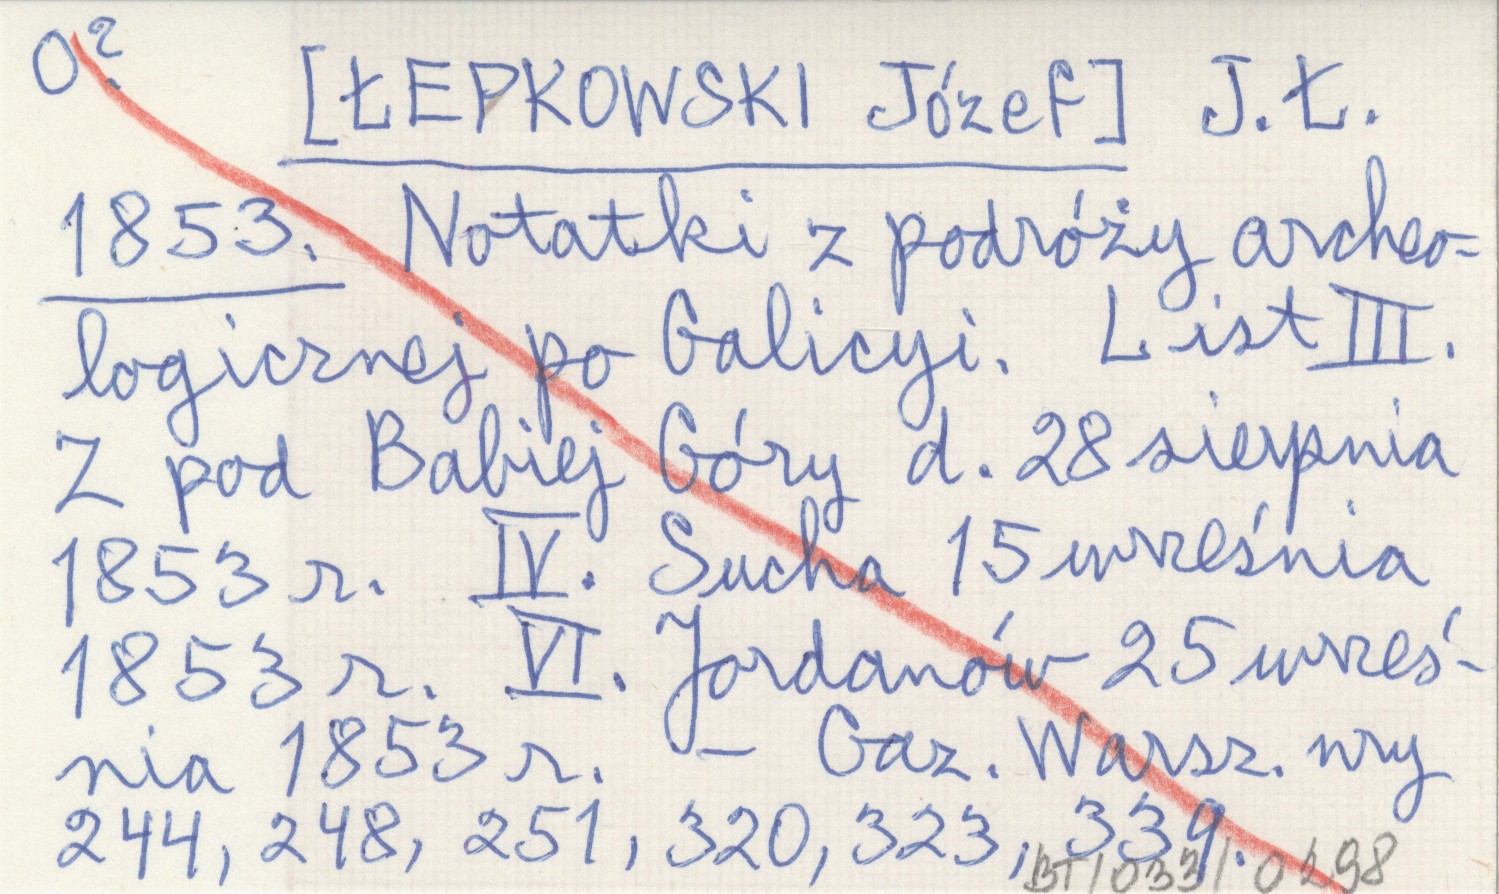 0?
[ŁEPKOWSKI Józef] J.Ł.
1853. Notatki z podróży archeo=
logicznej po Galicyi. List III.
Z pod Babiej Góry d. 28 sierpnia
1853 r. IV. Sucha 15 września
1853 r. VI. Jordanów 25 wrześ-
nia 1853 r. – Gaz. Warsz. nry
244, 248, 251, 320, 323, 339.
BT/033/0298